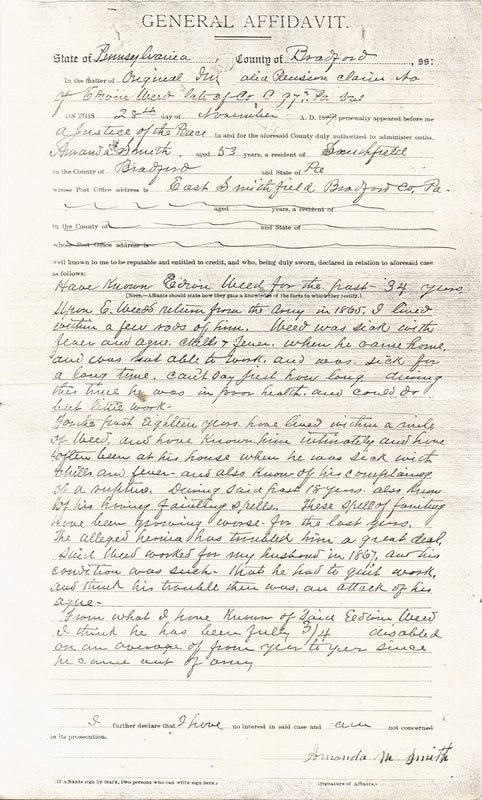 GENERAL AFFIDAVIT.
State of Pennsylvania, County of Bradford, ss:
In the matter of Original Inv alia Pension claim No
of Edwin Weed late of Co C 97th Pa Vol
ON THIS 28th day of November A. D. 1899 personally appeared before me
a Justice of the Peace in and for the aforesaid County duly authorized to administer oaths.
Amanda Smith aged 53 years, a resident of Smithfield
in the County of Bradford and State of Pa
whose Post Office address is East Smithfield Bradford Co, Pa.
aged years, a resident of
in the County of and State of
whose Post Office address is
well known to me to be reputable and entitled to credit, and who, being duly sworn, declared in relation to aforesaid case
as follows:
Have Known Edwin Weed for the past 34 years
[NOTE.—Affiants should state how they gain a knowledge of the facts to which they testify.]
Upon E. Weeds return from the Army in 1865, I lived
within a few rods of him. Weed was sick with
fever and ague. chills & fever. when he came home,
and was not able to work, and was sick for
a long time. can't say just how long during
this time he was in poor health. and could do
but little work-
For the past eighteen years have lived within a mile
of Weed, and have known him intimately and have
often been at his house when he was sick with
chills and fever- and also know of his complaining
of a rupture. During said past 18 years. also know
of his having fainting spells. These spell of fainting
have been growing worse- for the last years.
The alleged hernia has troubled him a great deal,
Said Weed worked for my husband in 1867, and his
condition was such- that he had to quit work,
and think his trouble then was, an attack of his
ague-
From what I have Known of Said Edwin Weed
I think he has been fully 3/4 disabled
on an average of from year to year since
he came out of army
I further declare that I have no interest in said case and am not concerned
in its prosecution.
Amanda M Smith
(If Affiants sign by mark, two persons who can write sign here.) (Signature of Affiants.)